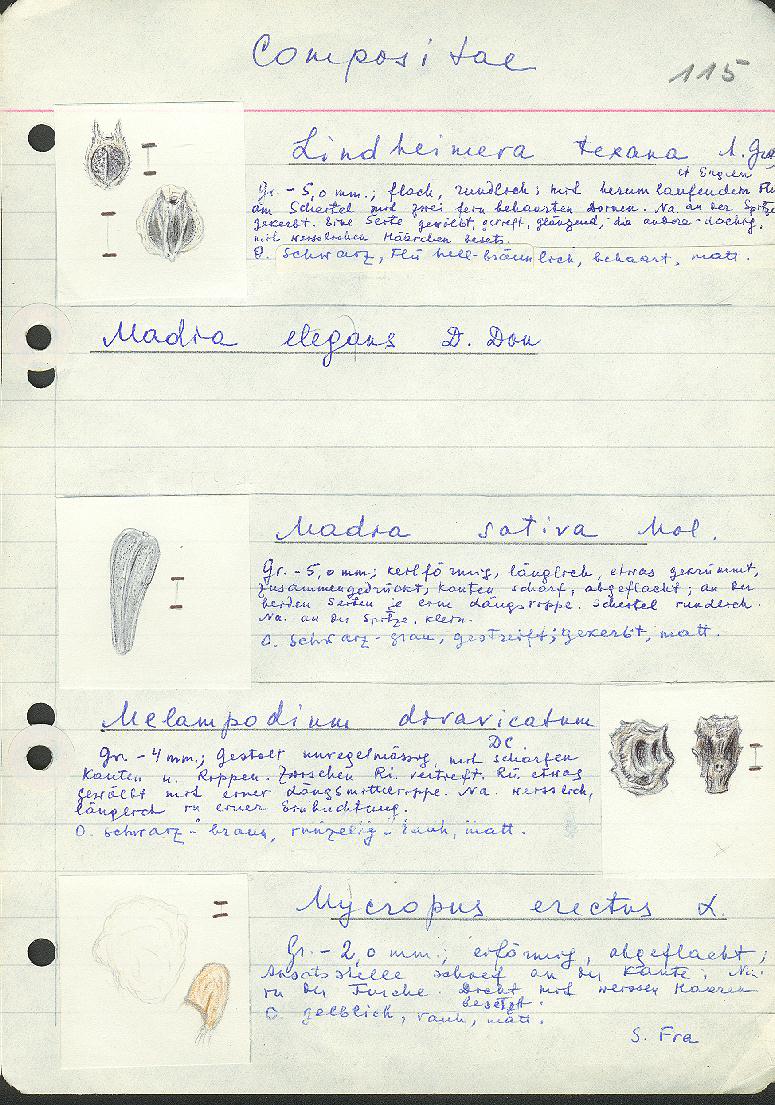 Compositae
115
Lindheimera texana A. Gray
et Engelm
Gr. - 5,0 mm.; flach, rundlich; mit herumlaufendem Flü
am Scheitel mit zwei fein behaarten Dornen. Na an der Spitze
gekerbt. Eine Seite gewölbt, gerieft, glänzend, die andere - dachig,
mit weisslichen Häärchen besetz.
O. Schwarz, Flü hell-bräunlich, behaart, matt.
Madia elegans D. Don
Madia sativa Mol.
Gr. - 5,0 mm; keilförmig, länglich, etwas gekrümmt,
zusammengedrückt, Kanten scharf, abgeflacht; an den
beiden Seiten je eine Längsrippe. Scheitel rundlich.
Na. an der Spitze, klein.
O. Schwarz-grau, gestreift; gekerbt, matt.
Melampodium divaricatum
DC.
Gr. - 4 mm.; Gestalt unregelmässig, mit scharfen
Kanten u. Rippen. Zwischen Ri. vertieft. Rü etwas
gewölbt mit einer Längsmittelrippe. Na. weisslich,
länglich in einer Einbuchtung.
O. schwarz-braun, runzelig-rauh, matt.
Mycropus erectus L.
Gr. - 2,0 mm.; eiförmig, abgeflacht;
Ansatzstelle schief an der Kante; Na.
in der Furche. Dicht mit weissen Haaren
besetzt.
O. gelblich, rauh, matt.
S. Fra